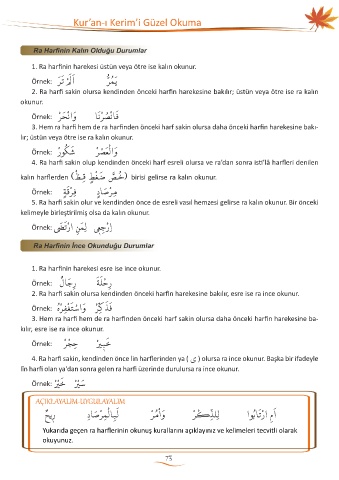 Kur’an-ı Kerim’i Güzel Okuma
Ra Harfinin Kalın Olduğu Durumlar
1. Ra harfinin harekesi üstün veya ötre ise kalın okunur.
Örnek:
2. Ra harfi sakin olursa kendinden önceki harfin harekesine bakılır; üstün veya ötre ise ra kalın
okunur.
Örnek: وَانْحَرْ
3. Hem ra harfi hem de ra harfinden önceki harf sakin olursa daha önceki harfin harekesine bakı-
lır; üstün veya ötre ise ra kalın okunur.
Örnek: وَالْعَصْرْ شَكُورْ
4. Ra harfi sakin olup kendinden önceki harf esreli olursa ve ra’dan sonra isti’lâ harfleri denilen
kalın harflerden (خُصَّ ضَغْطٍ قِظْ) birisi gelirse ra kalın okunur.
Örnek: مِرْصَادٍ فِرْقَةٍ
5. Ra harfi sakin olur ve kendinden önce de esreli vasıl hemzesi gelirse ra kalın okunur. Bir önceki
kelimeyle birleştirilmiş olsa da kalın okunur.
Örnek: اِرْجِعِى لِمَنِ ارْتَضَى
Ra Harfinin İnce Okunduğu Durumlar
1. Ra harfinin harekesi esre ise ince okunur.
Örnek: رِجَالٌ رِحْلَةَ
2. Ra harfi sakin olursa kendinden önceki harfin harekesine bakılır, esre ise ra ince okunur.
Örnek: فَذَكِّرْ وَاسْتَغْفِرْهُ
3. Hem ra harfi hem de ra harfinden önceki harf sakin olursa daha önceki harfin harekesine ba-
kılır, esre ise ra ince okunur.
Örnek: حِجْرْ خَبِيرْ
4. Ra harfi sakin, kendinden önce lin harflerinden ya ( ي ) olursa ra ince okunur. Başka bir ifadeyle
lin harfi olan ya’dan sonra gelen ra harfi üzerinde durulursa ra ince okunur.
Örnek: خَيْرْ سَيْرْ
AÇIKLAYALIM-UYGULAYALIM
رِيحٌ لَبِالْمِرْصَادِ وَأْمُرْ لِلذِّكْرْ اَمِ ارْتَابُوا
Yukarıda geçen ra harflerinin okunuş kurallarını açıklayınız ve kelimeleri tecvitli olarak
okuyunuz.
75